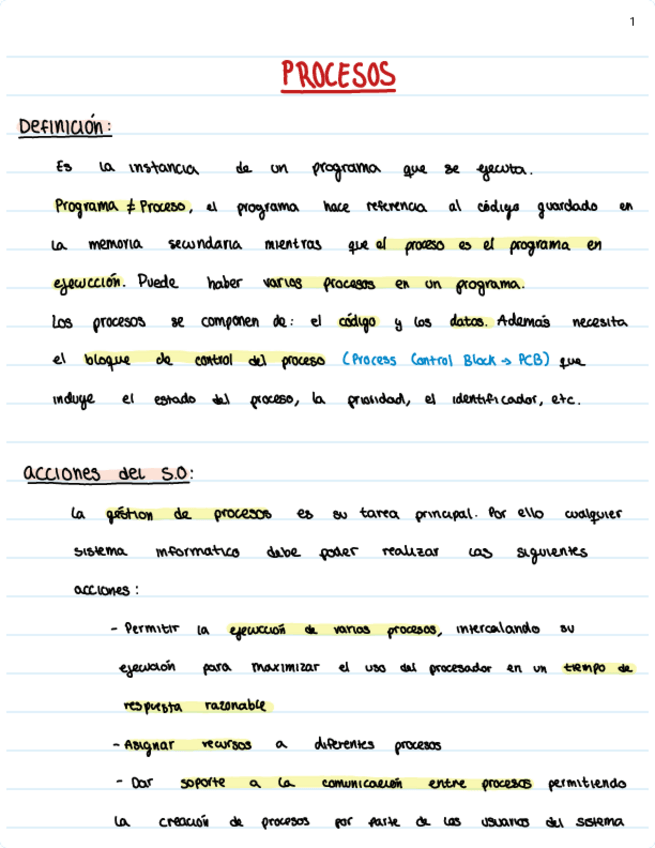 1
PROCESOS
Definición:
Es la instancia de un programa que se ejecuta.
Programa ≠ Proceso, el programa hace referencia al código guardado en
la memoria secundaria mientras que el proceso es el programa en
ejewcción. Puede haber varios procesos en un programa.
Los procesos se componen de: el código y los datos. Además necesita
el bloque de control del proceso (Process Control Block → PCB) que
incluye el estado del proceso, la prioridad, el identificador, etc.
acciones del S.O:
La gestion de procesos es su tarea principal. Por ello cualquier
sistema informatico debe poder realizar las siguientes
acciones:
- Permitir la ejecución de varios procesos, intercalando su
ejecución para maximizar el uso del procesador en un tiempo de
respuesta razonable
- Asignar recursos a diferentes procesos
- Dar soporte a la comunicación entre procesos permitiendo
la creación de procesos por parte de los usuarios del sistema